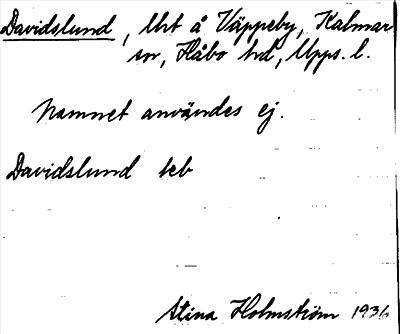 Davidslund, lht å Väppeby, Kalmar
sn, Håbo hd, Upps. l.
Namnet användes ej.
Davidslund teb
Stina Holmström 1936